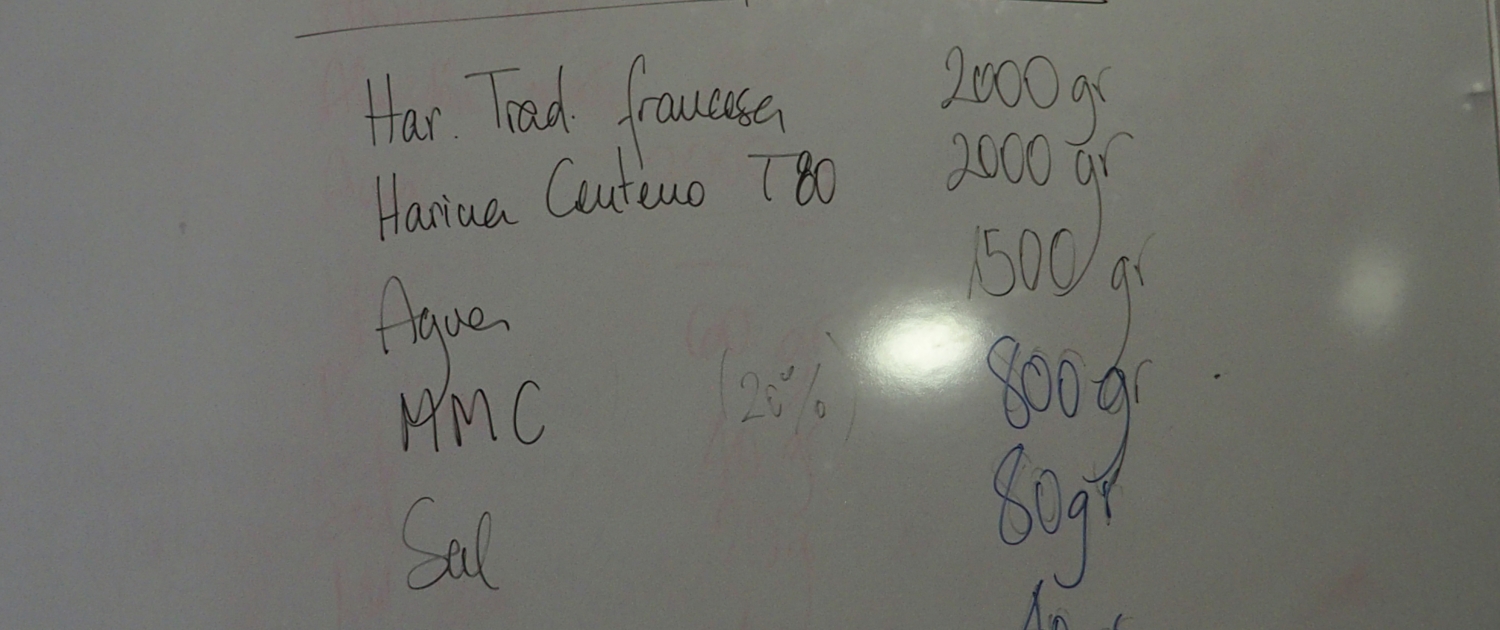 Har. Trad. francesa 2000 gr
Harina Centeno T80 2000 gr
Agua 1500 gr
MMC (20%) 800 gr
Sal 80 gr